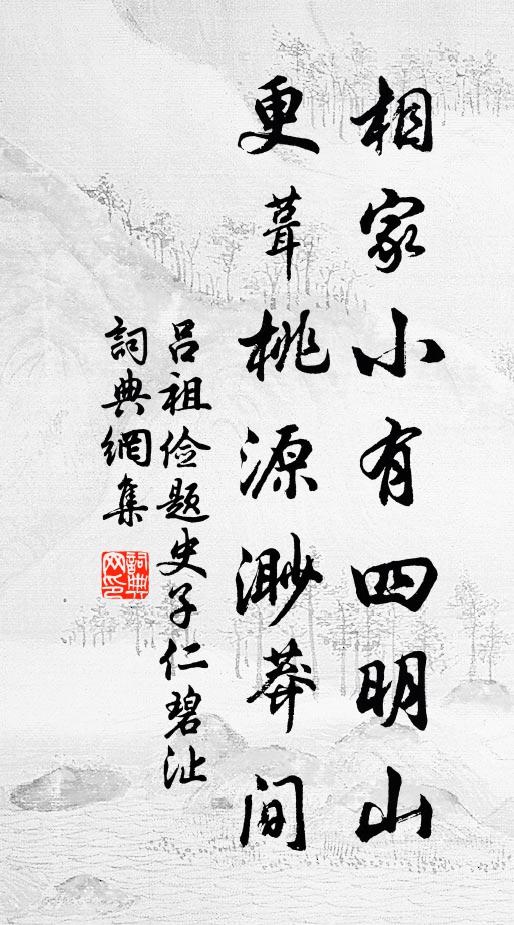 相家小有四明山
更葺桃源渺莽間
吕祖儉題史子仁碧沚
詞典網集
詞典网印